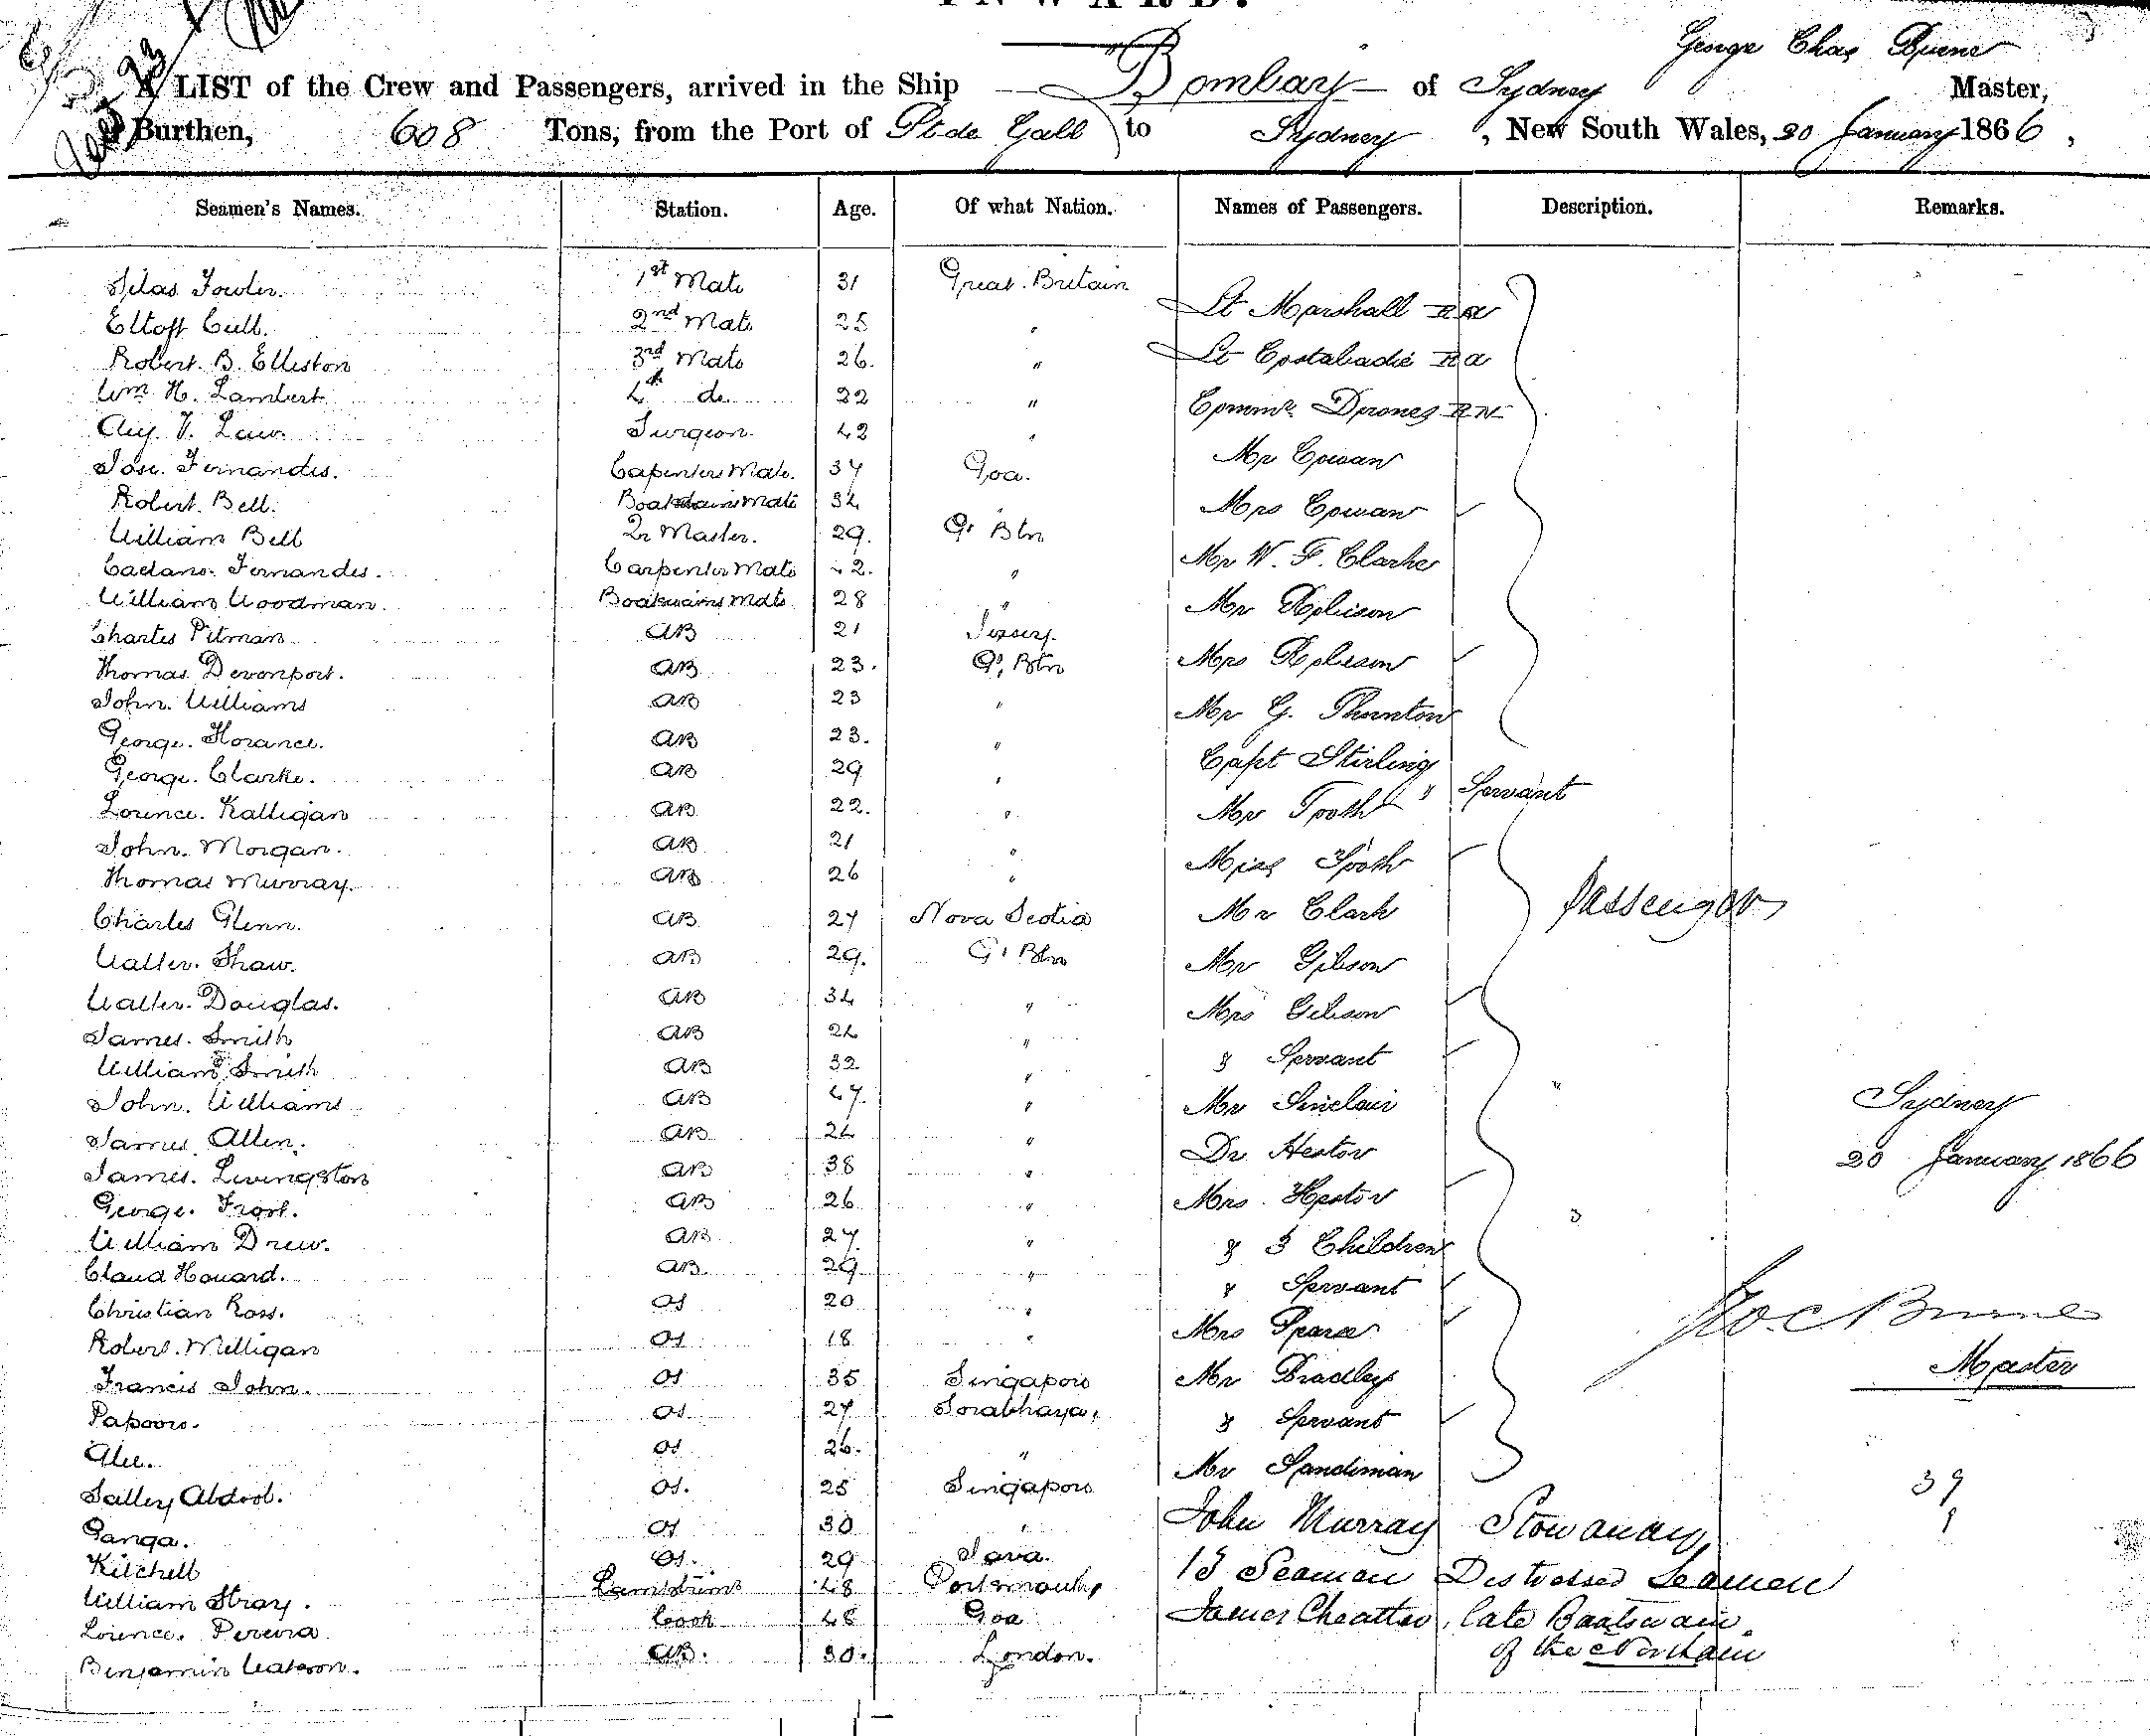 INWARD.
George Chas Burne
A LIST of the Crew and Passengers, arrived in the Ship Bombay of Sydney Master,
Burthen, 608 Tons, from the Port of Pt de Gall to Sydney, New South Wales, 20 January 1866,
Seamen's Names. Station. Age. Of what Nation. Names of Passengers. Description. Remarks.
Silas Fowler. 1st Mate 31 Great Britain
Lt Marshall RA
Eltoft Cull. 2nd Mate 25 "
Robert B. Elleston 3rd Mate 26. " Lt Costabadie RA
Wm H. Lambert 4th do 22 " Commr RN
Aug. V. Law. Surgeon. 42 "
Mr Cowan
Jose. Fernandes. Carpenters Mate. 37 Goa.
Robert. Bell. Boatswains Mate 34 Mrs Cowan
William Bell Qr Master. 29. Gt Btn
Caetano. Fernandes. Carpenters Mate 42. " Mr W. F. Clarke
William Woodman. Boatswains Mate 28 " Mr
Charles Pitman AB 21 Jersey.
Thomas Devonport. AB 23. Gt Btn Mrs
John. Williams AB 23 " Mr G. Thornton
George. Horance. AB 23. "
George. Clarke. AB 29 " Capt Stirling & Servant
Lorence. Kalligan AB 22. " Mr Tooth
John. Morgan. AB 21 "
Thomas Murray. AB 26 " Miss Tooth
Charles Glenn. AB 27 Nova Scotia Mr Clark Passengers
Walter. Shaw. AB 29. Gt Btn Mr Gibson
Walter. Douglas. AB 34 " Mrs Gibson
James. Smith AB 24 "
William Smith AB 32 " & Servant
John. Williams AB 47. " Mr Sinclair Sydney
James. Allen. AB 24 " Dr Hestor
James. Livingston AB 38 " 20 January 1866
George. Frost. AB 26 " Mrs. Hestor
William Drew. AB 27 " & 3 Children
Claud Howard. AB 29 " & Servant
Christian Ross. OS 20 " Geo C Burne
Robert. Milligan OS 18 " Mrs Master
Francis John. OS 35 Singapore Mr Bradley
Papooro. OS 27 Sorabhaya. & Servant
Alee. OS 26. " Mr Sandiman
Salley Abdool. OS. 25 Singapore 39
Ganga. OS 30 " John Murray Stowaway 1
Kitchell OS. 29 Java. 18 Seamen Distressed Seamen
William Stray. Lamptrimr 48 Portsmouth
Lorence. Pereira Cook 48 Goa James Cheatter, late Boatswain
of the Northam
Benjamin Watson. AB. 30. London.